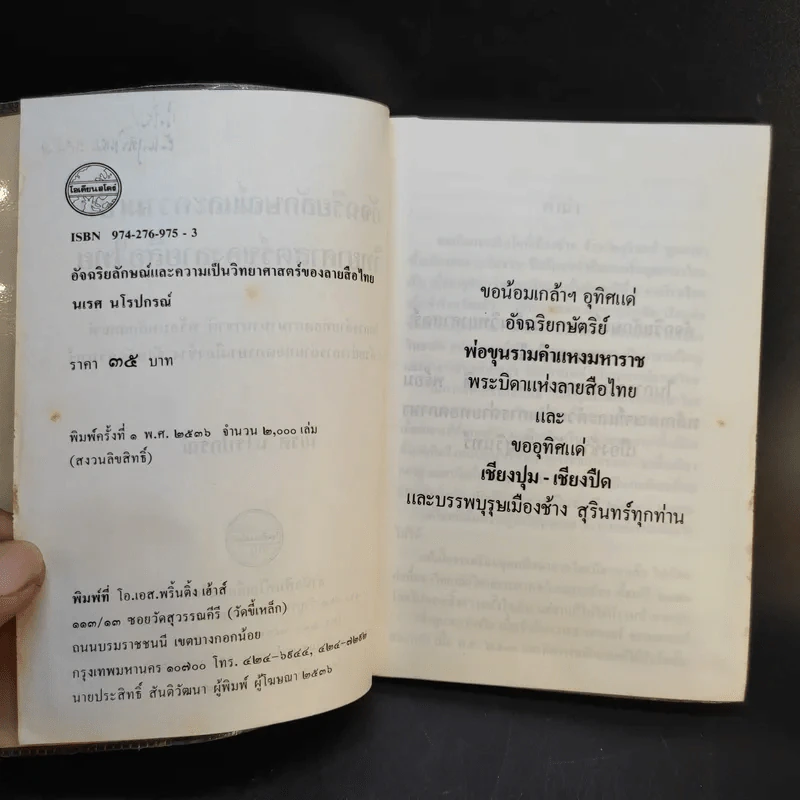 โอเดียนสโตร์
ISBN 974-276-975-3
อัจฉริยลักษณ์และความเป็นวิทยาศาสตร์ของลายสือไทย
นเรศ นโรปกรณ์
ราคา ๓๕ บาท
พิมพ์ครั้งที่ ๑ พ.ศ. ๒๕๓๖ จำนวน ๒,๐๐๐ เล่ม
(สงวนลิขสิทธิ์)
พิมพ์ที่ โอ.เอส.พริ้นติ้ง เฮ้าส์
๑๑๓/๑๓ ซอยวัดสุวรรณคีรี (วัดขี้เหล็ก)
ถนนบรมราชชนนี เขตบางกอกน้อย
กรุงเทพมหานคร ๑๐๗๐๐ โทร. ๔๒๔-๖๙๔๔, ๔๒๔-๗๒๙๒
นายประสิทธิ์ สันติวัฒนา ผู้พิมพ์ ผู้โฆษณา ๒๕๓๖
ขอน้อมเกล้าฯ อุทิศแด่
อัจฉริยกษัตริย์
พ่อขุนรามคำแหงมหาราช
พระบิดาแห่งลายสือไทย
และ
ขออุทิศแด่
เชียงปุม - เชียงปืด
และบรรพบุรุษเมืองช้าง สุรินทร์ทุกท่าน